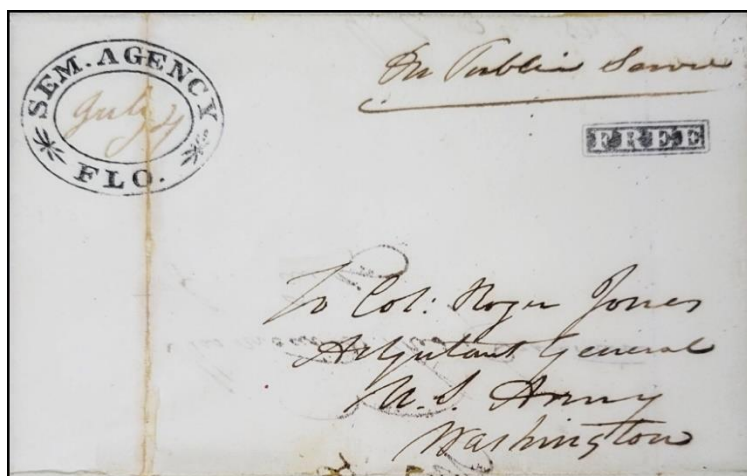 SEM. AGENCY
July 4
FLO.
On Public Service
FREE
To Col: Roger Jones
Adjutant General
U.S. Army
Washington